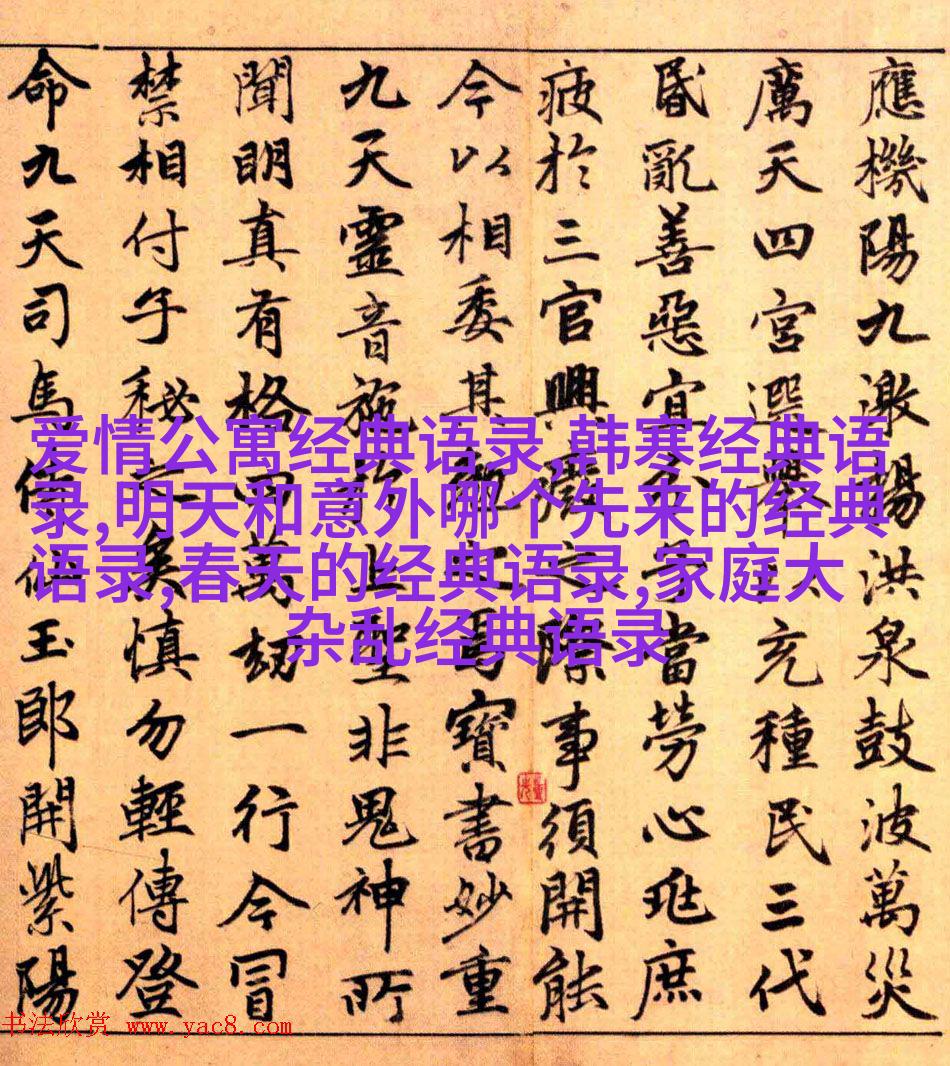 應機陽九激揚洪泉鼓波萬災
厲天四宮選舉以充種民三代
昏亂善惡宜分子當勞心兆庶
疲於三官興廢之際事須開能
今以相委其勖之焉寶書妙重
九天靈音施於上聖非鬼神所
聞明真有格四萬劫一行今冒
禁相付子秘之矣慎勿輕傳登
命九天司馬侍仙玉郎開紫陽
爱情公寓经典语录,韩寒经典语
录,明天和意外哪个先来的经典
语录,春天的经典语录,家庭大
杂乱经典语录
书法欣赏 www.yac8.com